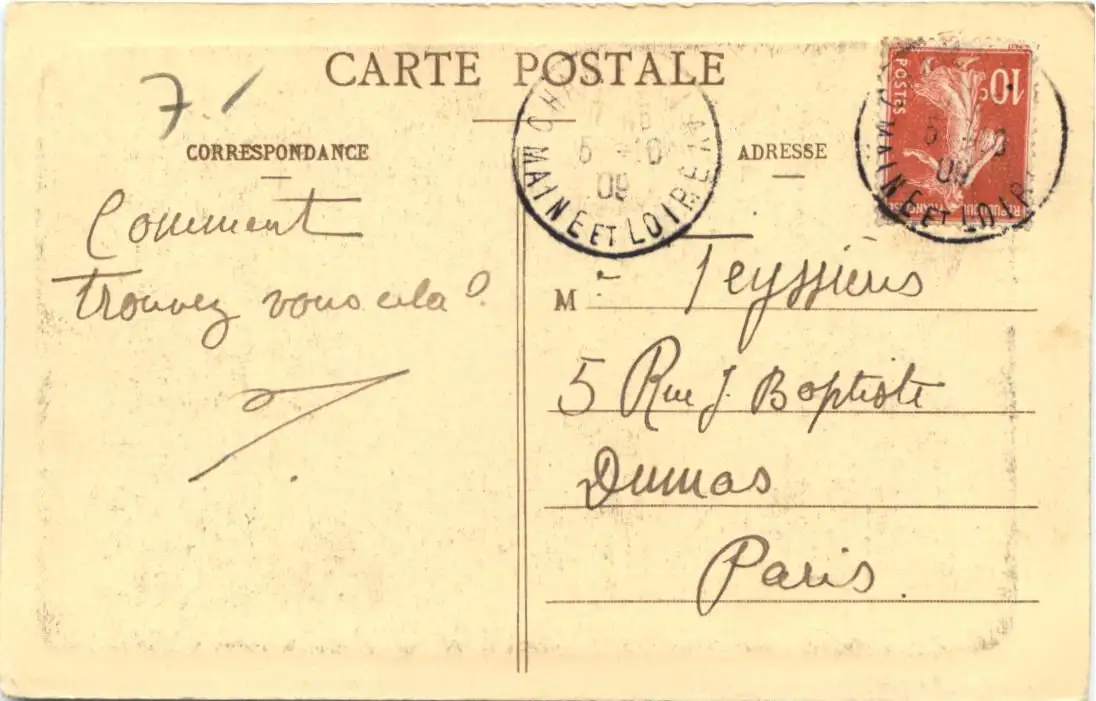 CARTE POSTALE
7
CORRESPONDANCE
ADRESSE
10c
POSTES
MAINE ET LOIRE
5 -10
09
MAINE ET LOIRE
09
Comment
trouvez vous cela?
M Teyssière
5 Rue J. Baptiste
Dumas
Paris.